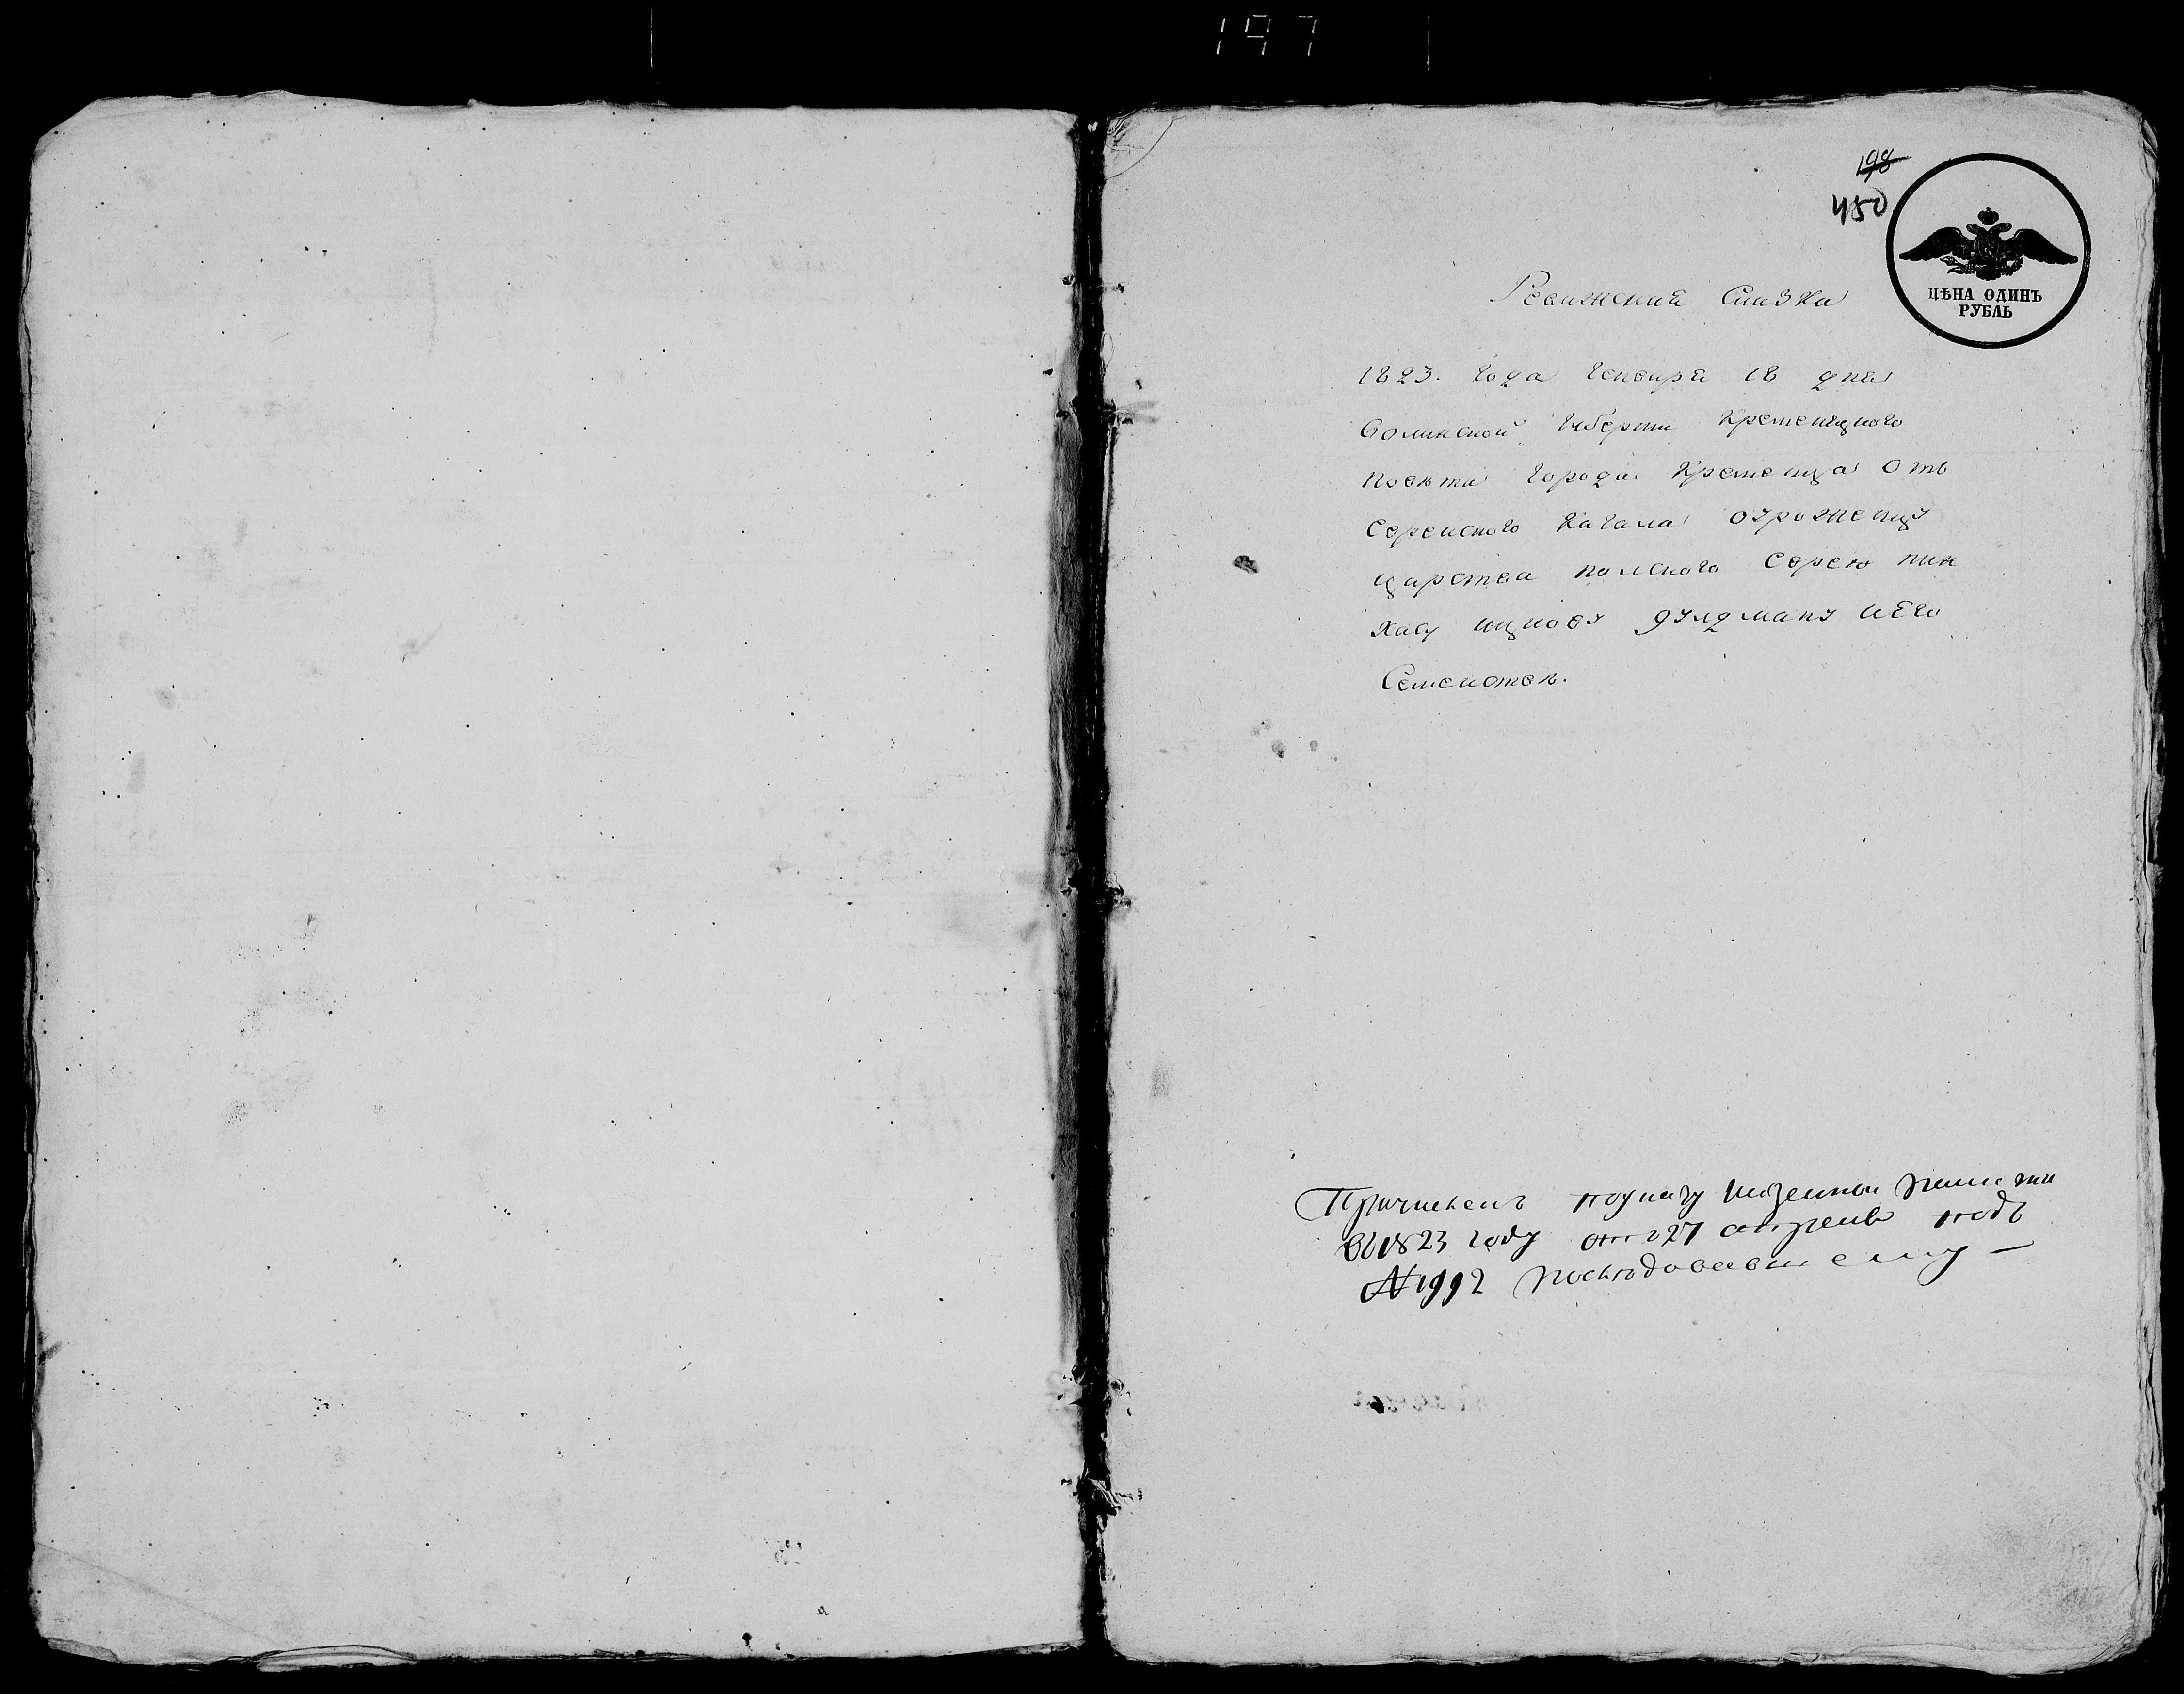 197
198
450
ЦѢНА ОДИНЪ
РУБЛЬ
Ревижская Сказка
1823. года Генваря 18 дня
Волинской Губерни Кременицкого
повѣта города Кременца отъ
Еврейского Кагала озроженцу
царства полского Еврею пин
хасу ицкову дулдману иЕго
Семействѣ.
Причисленъ поуказу казенной палати
въ1823 году отъ27 апреля подъ
№1992 последовавшему —